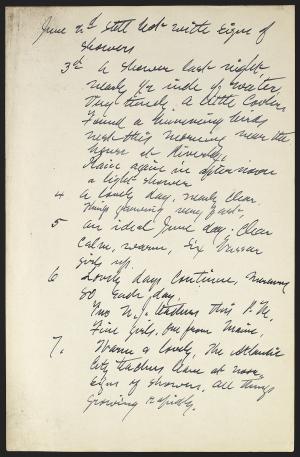 June 2d Still hot with signs of
showers
3d A shower last night,
nearly 1/2 inch of water
Very timely. A little cooler
Found a humming birds
nest this morning near the
house at Riverby.
Rain again in afternoon
a light shower
4 A lovely day, nearly clear.
Things growing very fast.
5 An ideal June day. Clear
calm, warm, Six Vassar
girls up.
6 Lovely days continue,
80 each day.
Two N.J. teachers this P.M.
Fine girls, one from Maine,
7. Warm & lovely, The Atlantic
City teachers leave at noon,
signs of showers. All things
growing rapidly.